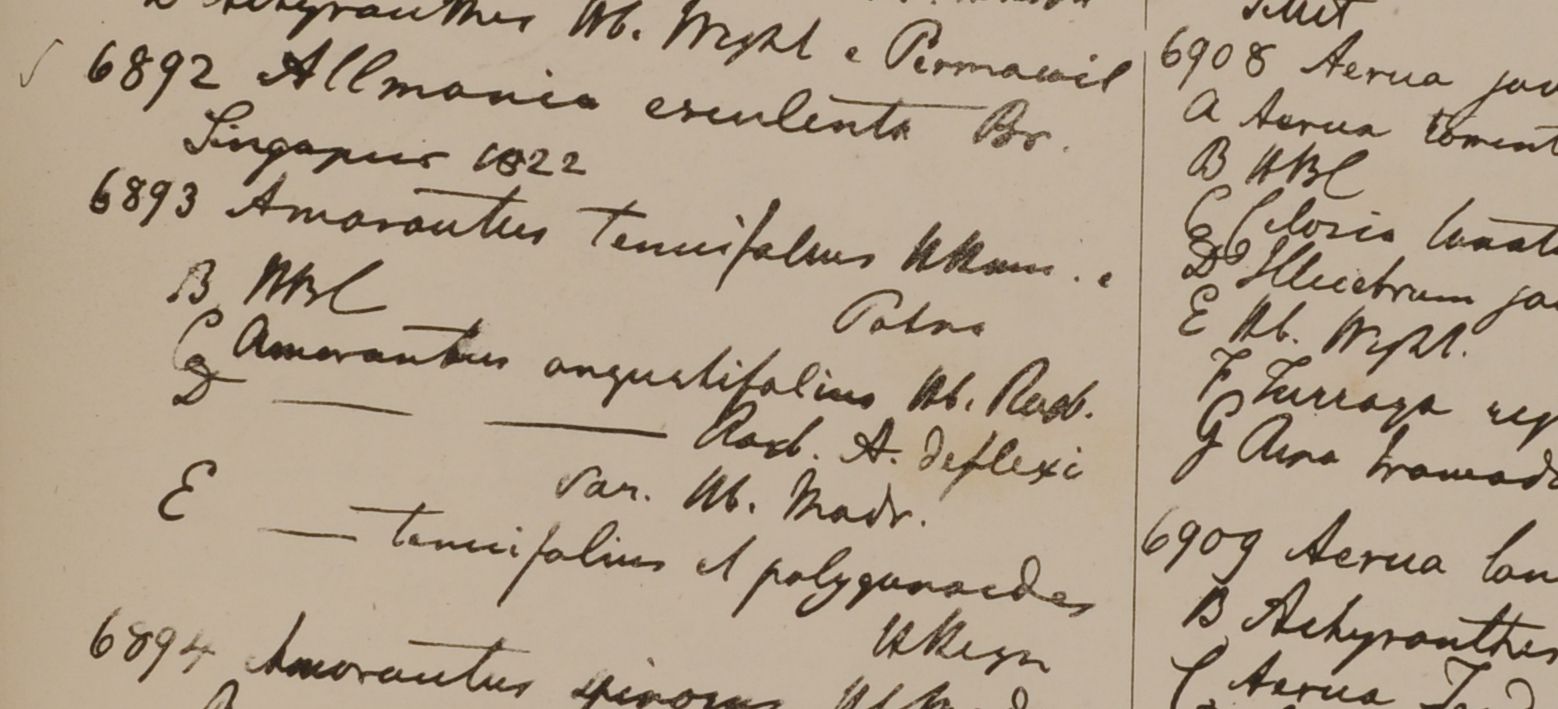 Achyranthes Hb. Wight e Permacoil
6892 Allmania esculenta Br.
Singapur 1822
6893 Amarantus tenuifolius HHam. e
Patna
B HBC
C Amaranthus angustifolius Hb. Roxb.
D — — Roxb. A. deflexi
var. Hb. Madr.
E — tenuifolius et polygonoides
HHeyn
6894 Amarantus spinosus
6908 Aerua jav
A Aerua toment
B HBC
C Celosia lanat
D Illecebrum ja
E Hb. Wight.
F
G
6909 Aerua lan
B Achyranthes
C Aerua